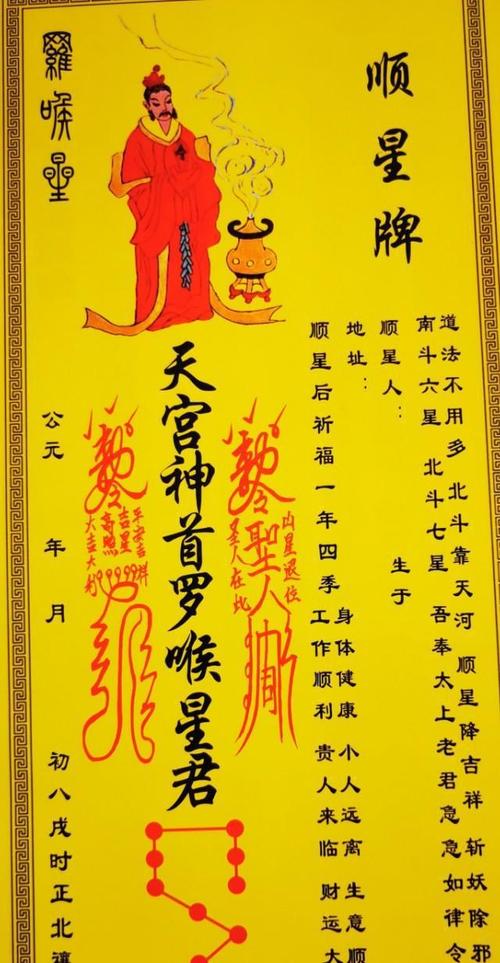 顺星牌
道法不用多 北斗靠天河 顺星降吉祥 斩妖除邪
南斗六星 北斗七星 吾奉太上老君急急如律令
顺星人： 生于
地址：
身体健康 小人远离 生意顺
顺星后祈福一年四季 工作顺利 贵人来临 财运大
凶星退位
聖人
圣人在此
天宫神首罗喉星君
平安吉祥
吉星高照
大吉大利
羅喉星
公元 年 月 初八戌时正北禳